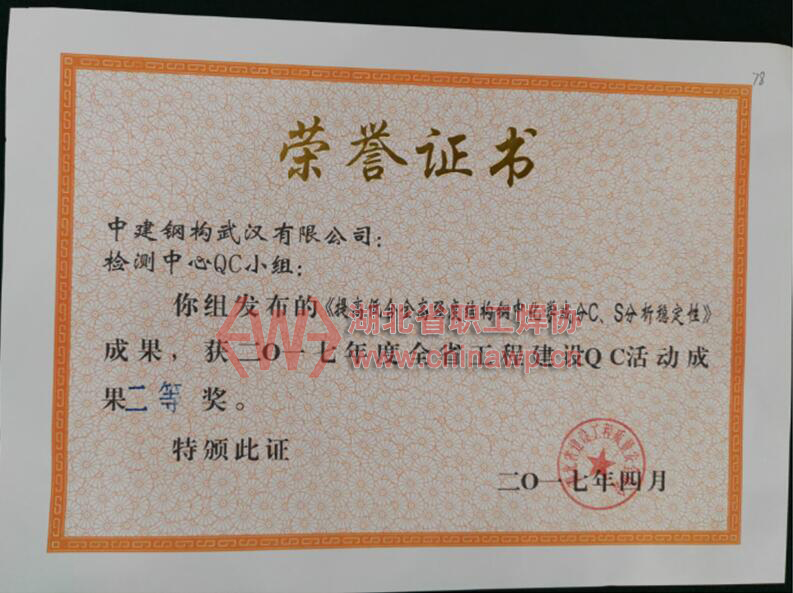 78
荣誉证书
中建钢构武汉有限公司:
检测中心QC小组:
你组发布的《提高低合金高强度结构钢中化学成分C、S分析稳定性》
成果，获二〇一七年度全省工程建设QC活动成
果二等奖。
特颁此证
二〇一七年四月
湖北省职工焊协